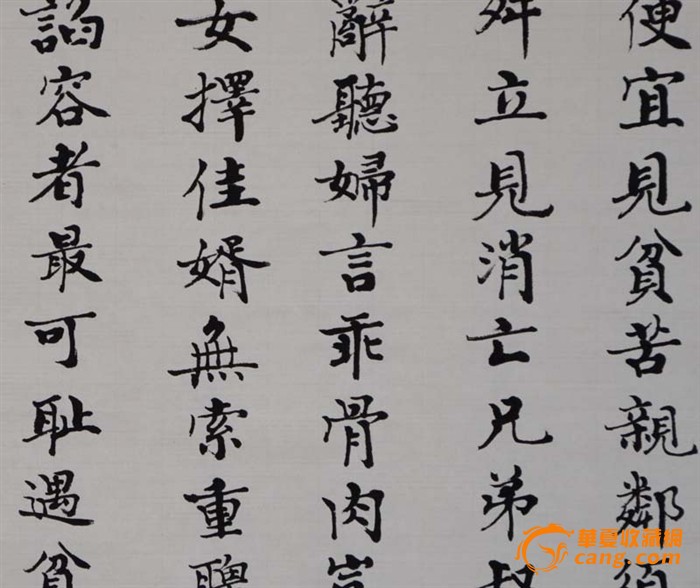 便宜見貧苦親鄰須
舛立見消亡兄弟叔
辭聽婦言乖骨肉豈
女擇佳婿無索重聘
諂容者最可恥遇貧
華夏收藏網
cang.com